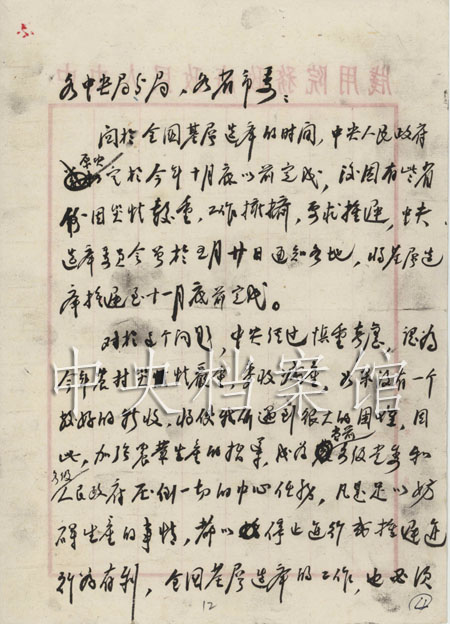 各中央局分局，各省市委：
关于全国基层选举的时间，中央人民政府
原央定于今年十月底以前完成，后因有些省
份因灾情严重，工作拥挤，要求推迟，中央
选举委员会曾于五月廿日通知各地，将基层选
举推迟至十一月底前完成。
对于这个问题，中央经过慎重考虑，认为
今年农村灾情严重，夏收
如果没有一个
较好的秋收，将使我们遇到很大的困难，因
此，加强农业生产的指导，成为当前各级党委和
各级人民政府压倒一切的中心任务，凡是足以妨
碍生产的事情，都以停止进行或推迟进
行为有利，全国基层选举的工作，也必须
中央档案馆
12
④